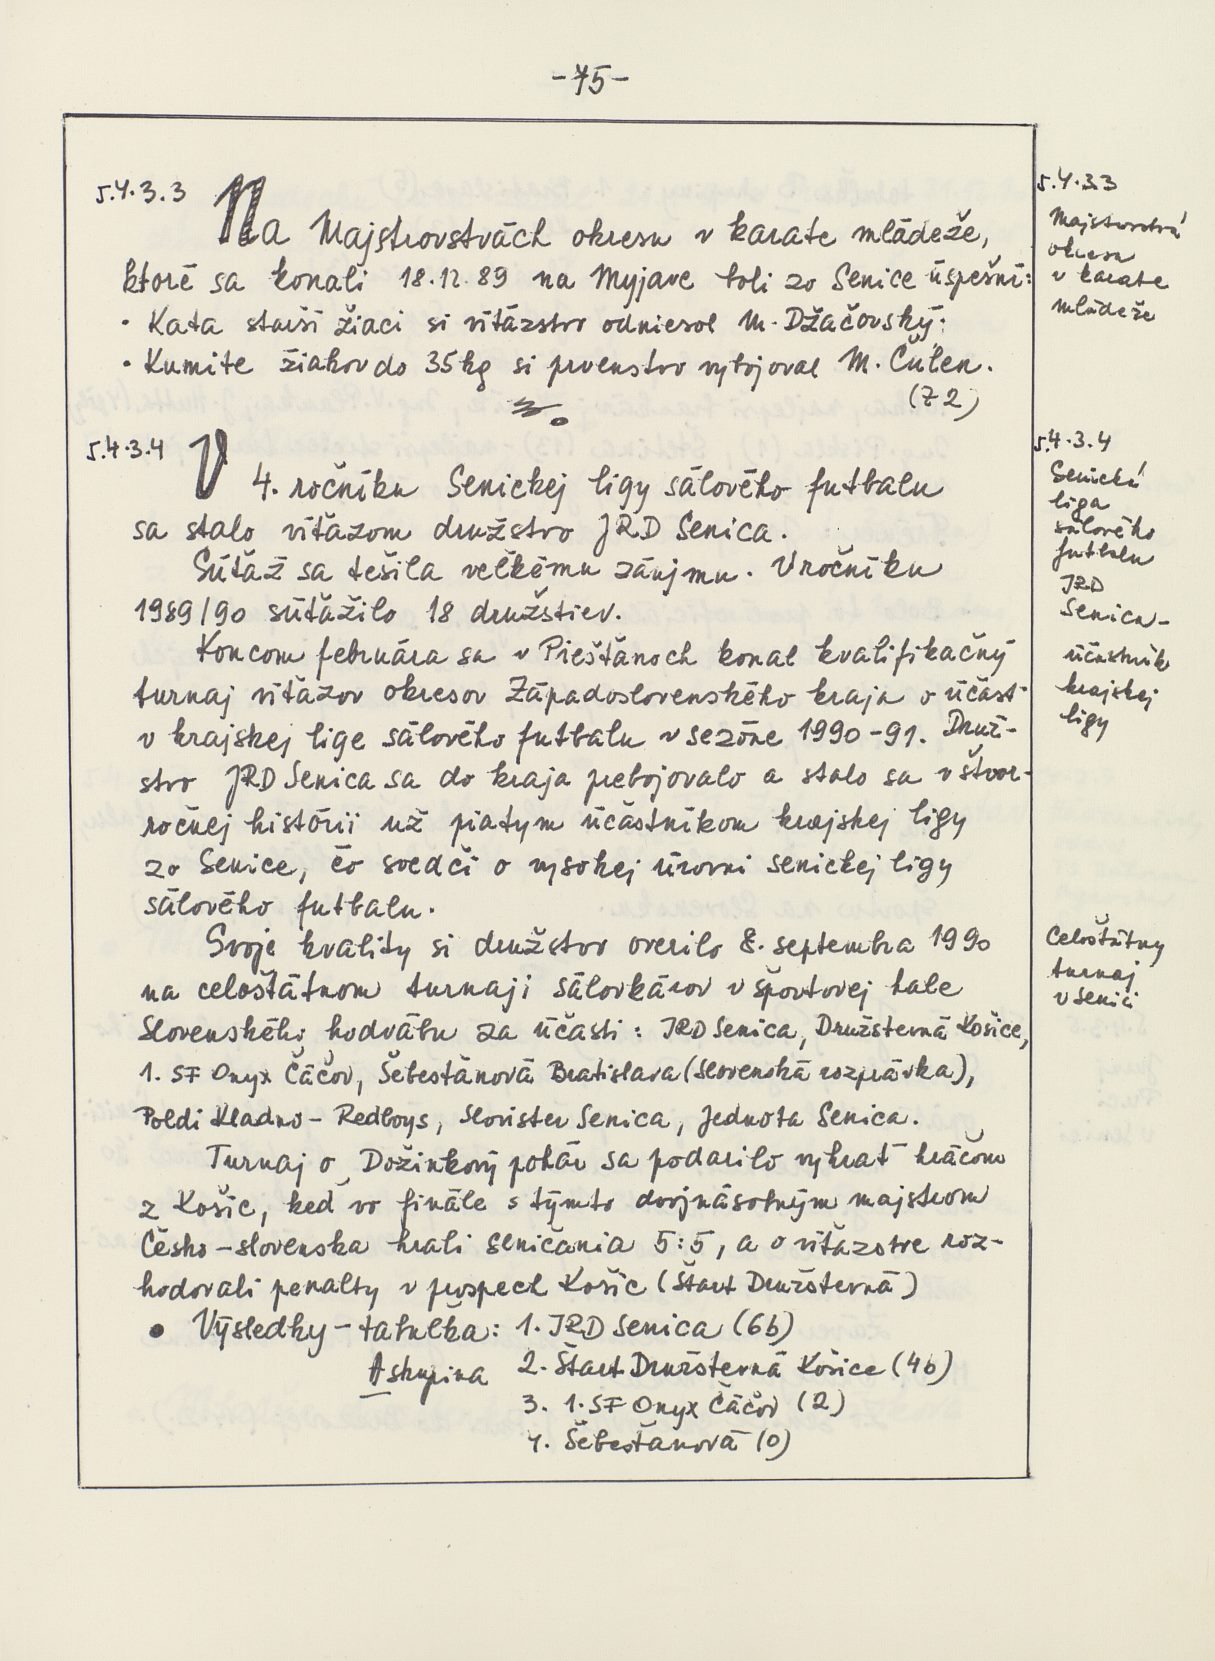 -75-
5.4.3.3 Na Majstrovstvách okresu v karate mládeže,
ktoré sa konali 18.12.89 na Myjave boli zo Senice úspešní:
• Kata starší žiaci si víťazstvo odniesol M. Džačovský;
• Kumite žiakov do 35 kg si prvenstvo vybojoval M. Čulen.
(Z 2)
5.4.3.4 V 4. ročníku Senickej ligy sálového futbalu
sa stalo víťazom družstvo JRD Senica.
Súťaž sa tešila veľkému záujmu. V ročníku
1989/90 súťažilo 18 družstiev.
Koncom februára sa v Piešťanoch konal kvalifikačný
turnaj víťazov okresov Západoslovenského kraja o účasť
v krajskej lige sálového futbalu v sezóne 1990-91. Druž-
stvo JRD Senica sa do kraja prebojovalo a stalo sa v štvor-
ročnej histórii už piatym účastníkom krajskej ligy
zo Senice, čo svedčí o vysokej úrovni senickej ligy
sálového futbalu.
Svoje kvality si družstvo overilo 8. septembra 1990
na celoštátnom turnaji sálovkárov v športovej hale
Slovenského hodvábu za účasti: JRD Senica, Družsterná Košice,
1. SF Onyx Čáčov, Šebešťanová Bratislava (Slovenská rozprávka),
Poldi Kladno - Redboys, Slovister Senica, Jednota Senica.
Turnaj o Dožinkový pohár sa podarilo vyhrať hráčom
z Košíc, keď vo finále s týmto dvojnásobným majstrom
Česko-slovenska hrali seničania 5:5, a o víťazstve roz-
hodovali penalty v prospech Košíc (Štart Družsterná)
• Výsledky - tabuľka: 1. JRD Senica (6b)
A skupina 2. Štart Družsterná Košice (4b)
3. 1. SF Onyx Čáčov (2)
4. Šebešťanová (0)
5.4.3.3
Majstrovstvá
okresu
v karate
mládeže
5.4.3.4
Senická
liga
sálového
futbalu
JRD
Senica -
účastník
krajskej
ligy
Celoštátny
turnaj
v Senici